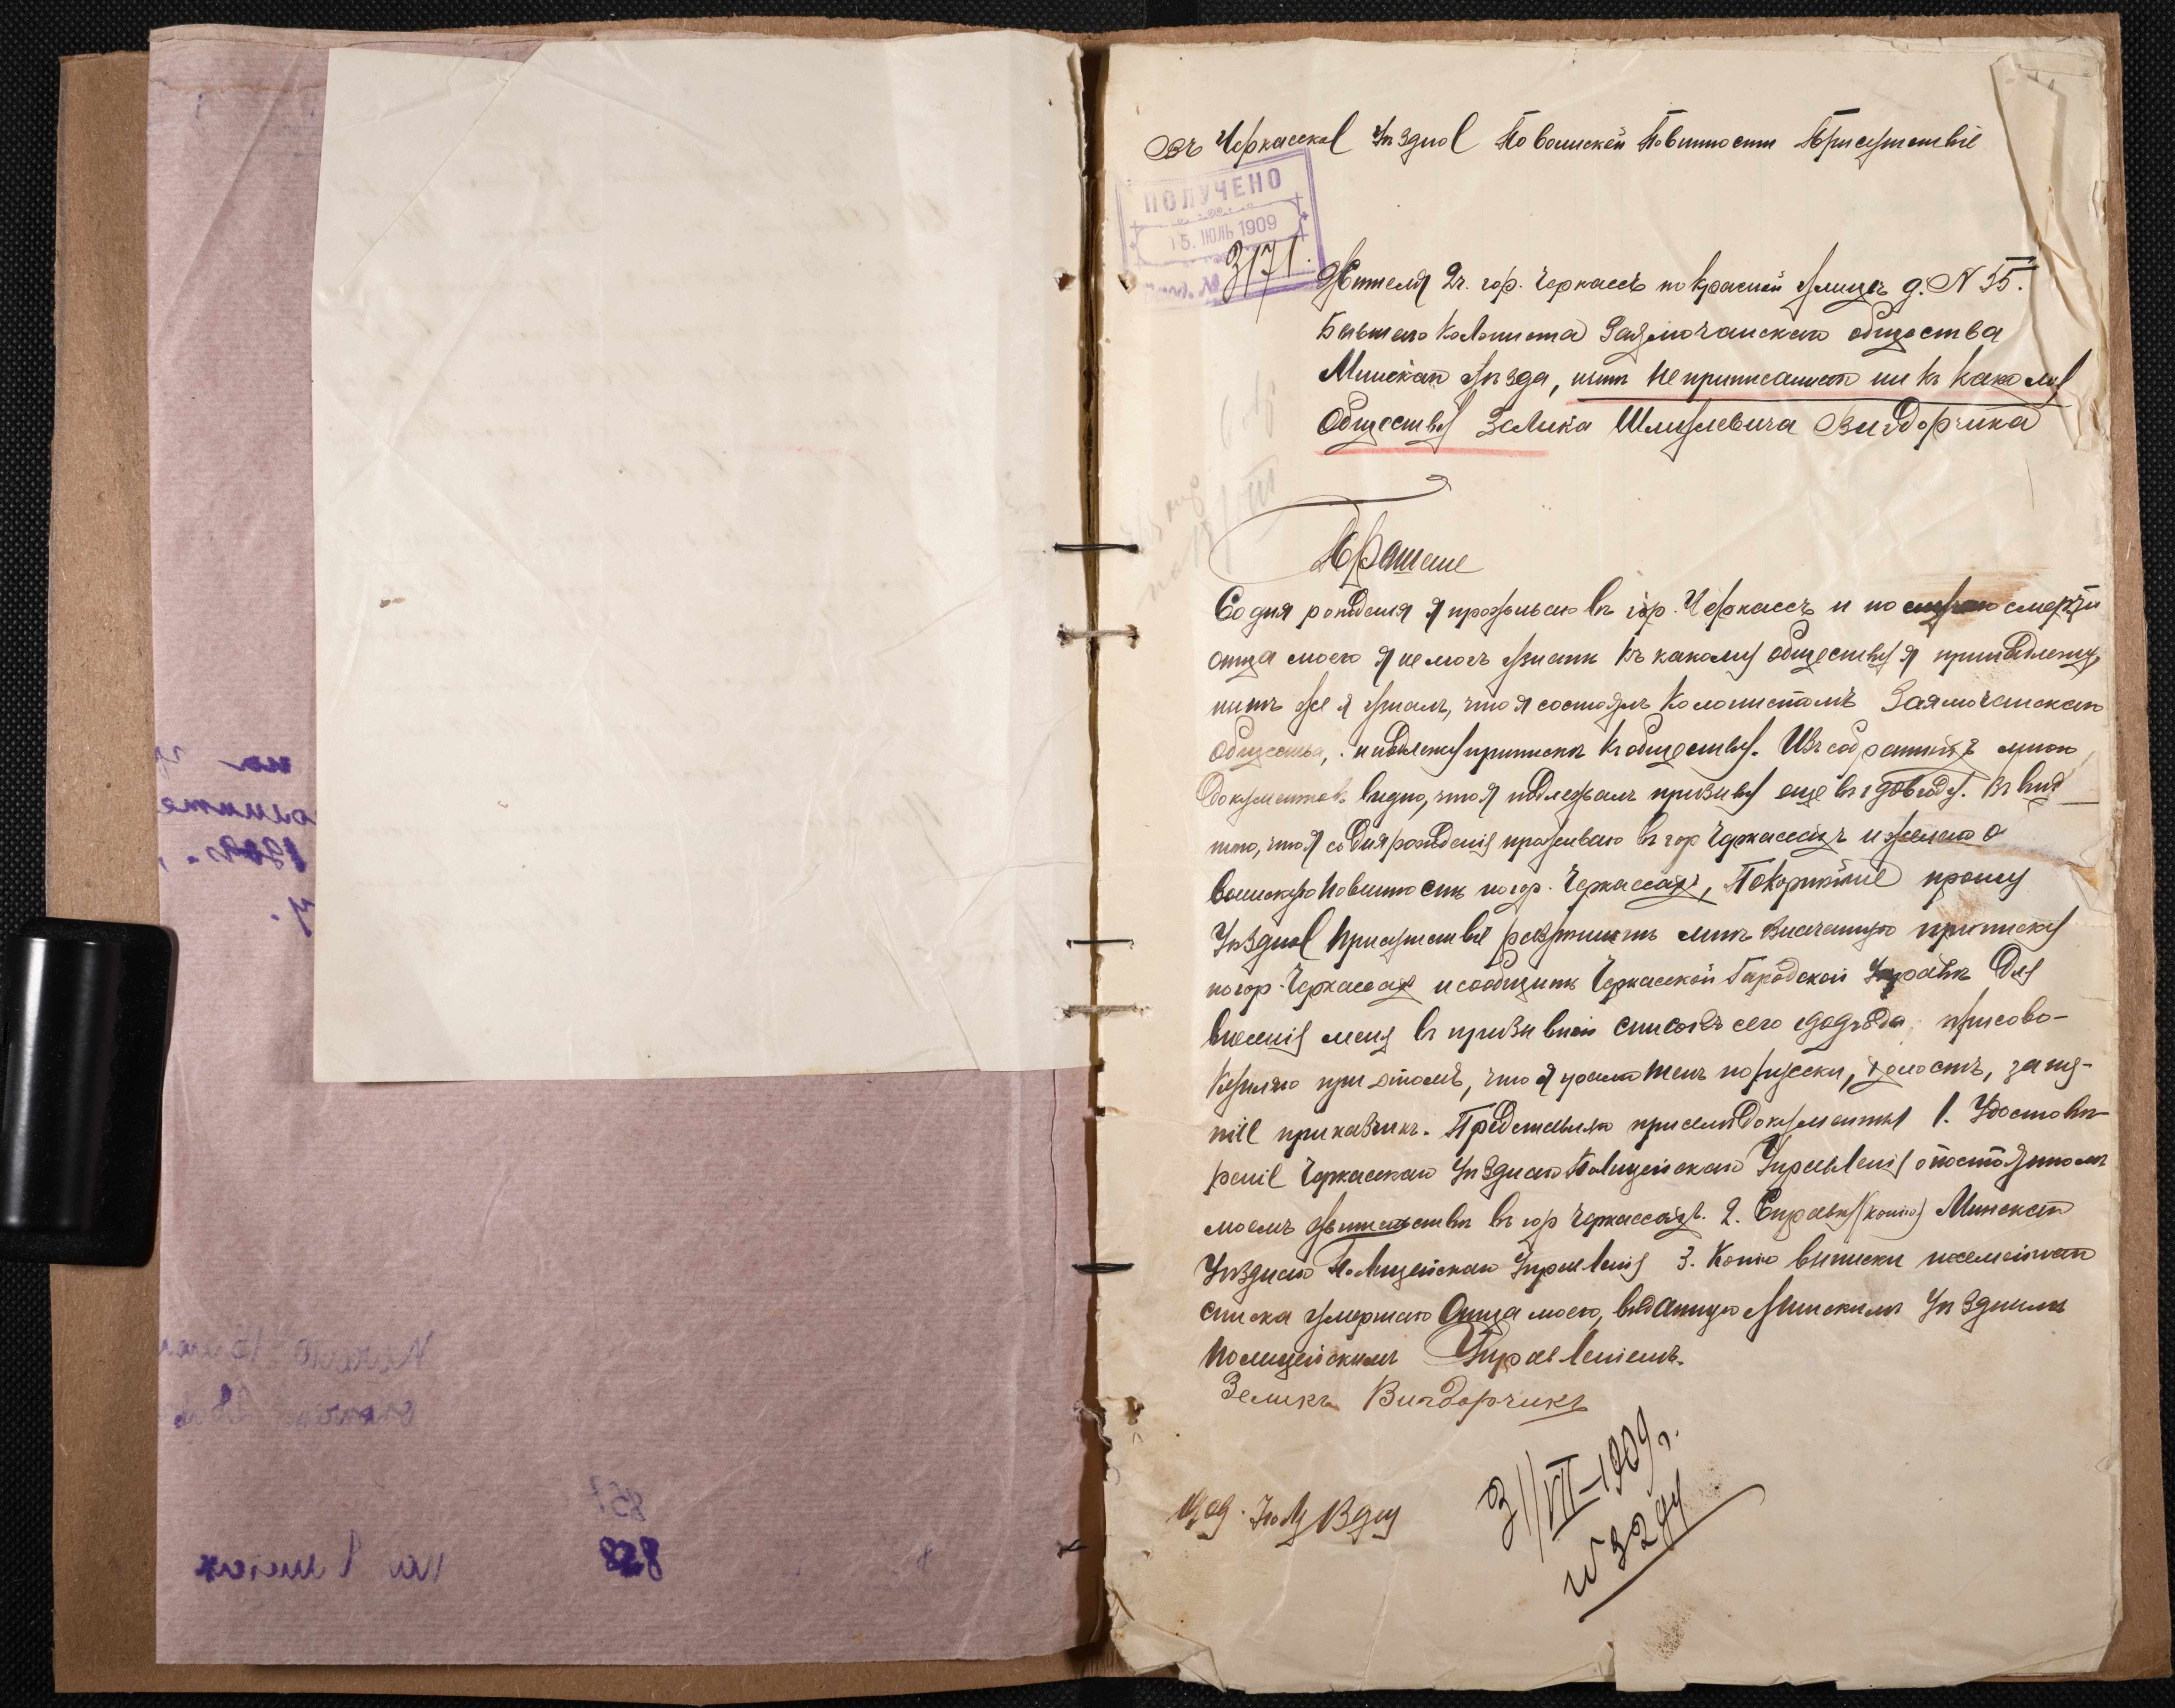 Въ Черкасское Уѣздное По воинской Повинности Присутствіе
ПОЛУЧЕНО
15. ІЮЛЬ 1909
№ 3171.
Жителя 2ч. гор. Черкассъ по Красной улицѣ д. N 55.
Бывшего Колониста общества
Минскаго уѣзда, нынѣ не приписаннаго ни къ какому
Обществу Зелика Шмулевича Вигдорчика
Прошеніе
Со дня рожденія я проживаю въ гор. Черкассъ и по случаю смерти
отца моего я не могъ узнать къ какому обществу я принадлежу,
нынѣ же я узналъ, что я состоялъ Колонистомъ
Общества, и подлежу припискѣ къ обществу. Изъ собранныхъ мною
документовъ видно, что я подлежалъ призыву еще въ году. Въ виду
того, что я со дня рожденія проживаю въ гор Черкассахъ и желаю о
воинскую повинность по гор. Черкассахъ, Покорнѣйше прошу
Уѣздное Присутствіе разрѣшить мнѣ приписку
по гор. Черкассах и сообщить Черкасской Городской Управѣ Для
внесенія меня въ призывной списокъ сего года, присово-
купляю при этомъ, что я грамотенъ по русски, холостъ, заня-
тіе приказчикъ. Представляю при семъ Документы 1. Удостовѣ-
реніе Черкасскаго Уѣзднаго Полицейскаго Управленія о постоянномъ
моемъ жительствѣ въ гор Черкассахъ. 2. Справку (копію) Минскаго
Уѣзднаго Полицейскаго Управленія 3. Копію выписки посемейнаго
списка умершаго Отца моего, выданную Минскимъ Уѣзднымъ
Полицейскимъ Управленіемъ.
Зеликъ Вигдорчикъ
31/VII-1909 г.
N 3294